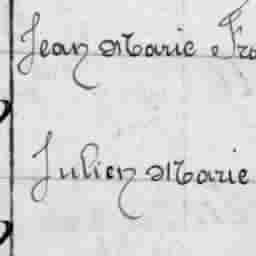 Jean Marie Fra
Julien Marie